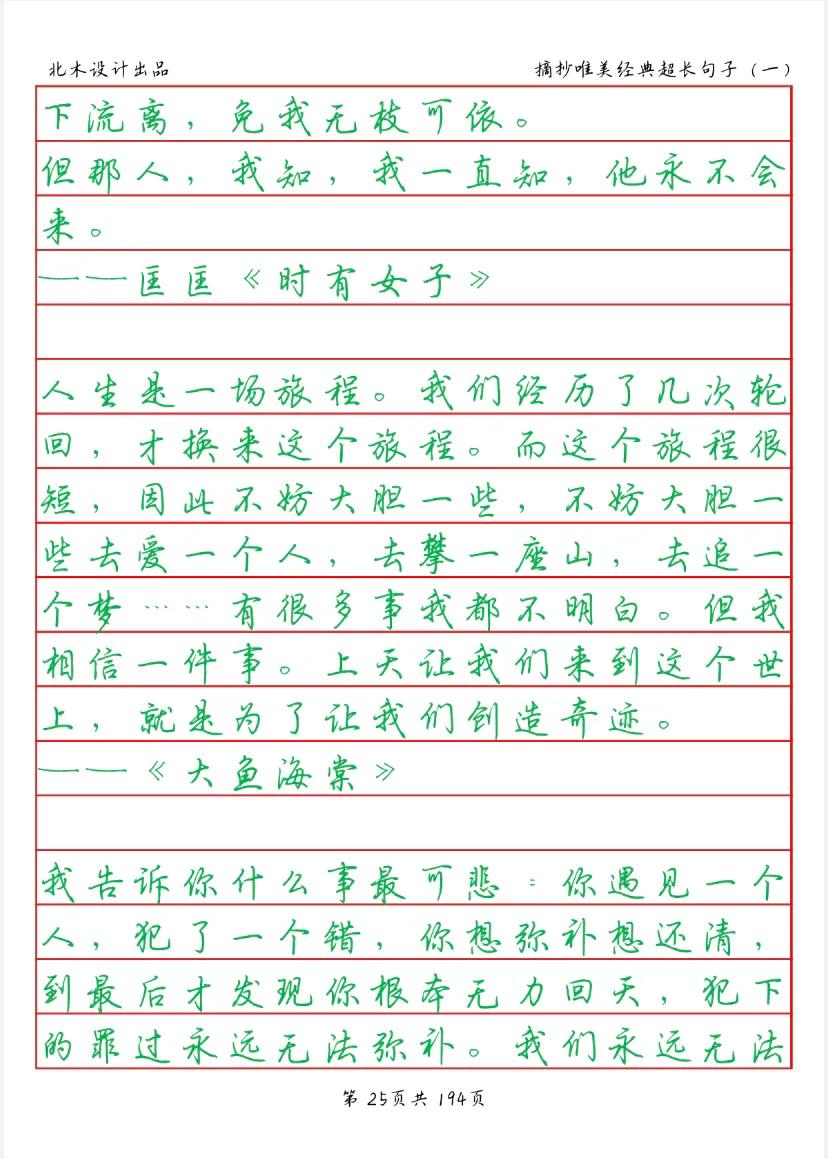 北木设计出品 摘抄唯美经典超长句子（一）
下流离，免我无枝可依。
但那人，我知，我一直知，他永不会
来。
——匡匡《时有女子》
人生是一场旅程。我们经历了几次轮
回，才换来这个旅程。而这个旅程很
短，因此不妨大胆一些，不妨大胆一
些去爱一个人，去攀一座山，去追一
个梦……有很多事我都不明白。但我
相信一件事。上天让我们来到这个世
上，就是为了让我们创造奇迹。
——《大鱼海棠》
我告诉你什么事最可悲：你遇见一个
人，犯了一个错，你想弥补想还清，
到最后才发现你根本无力回天，犯下
的罪过永远无法弥补。我们永远无法
第 25页共 194页